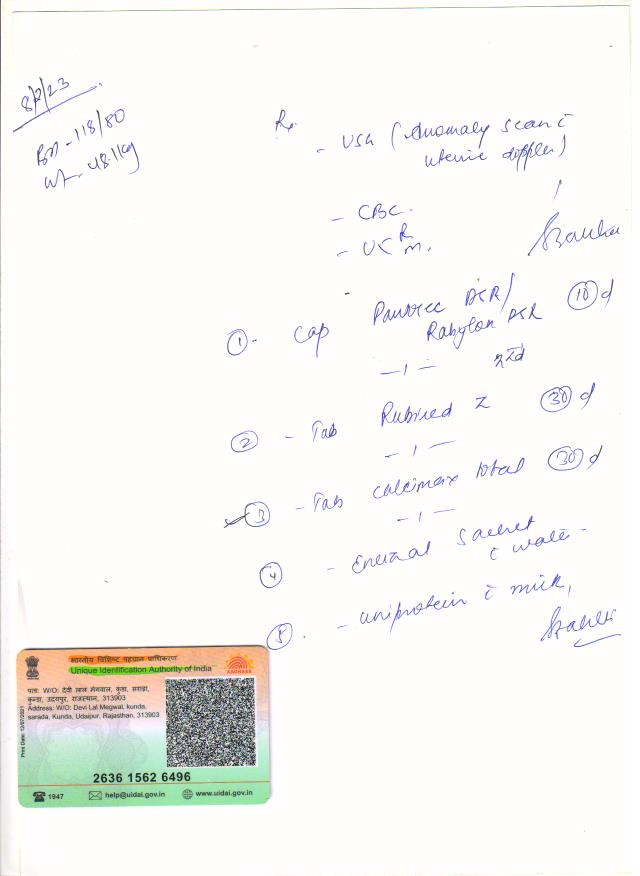 8/2/23
BP - 118/80
wt - 48.1kg
Rx
- USG (Anomaly scan c̄
uterine doppler)
- CBC.
- UC R/m.
① - Cap Pantotec DSR/ ⑩ d
Rabylon DSR
— 1 —
② - Tab Rubired Z ㉚ d
— 1 —
③ - Tab Calcimax total ㉚ d
— 1 —
④ - Enerzal Sachet
c̄ water -
⑤ . - Uniprotein c̄ milk,
भारतीय विशिष्ट पहचान प्राधिकरण
Unique Identification Authority of India
AADHAAR
पता: W/O: देवी लाल मेगवाल, कुन्डा, सराड़ा,
कुन्डा, उदयपुर, राजस्थान, 313903
Address: W/O: Devi Lal Megwal, kunda,
sarada, Kunda, Udaipur, Rajasthan, 313903
Print Date: 12/07/2021
2636 1562 6496
1947 help@uidai.gov.in www.uidai.gov.in